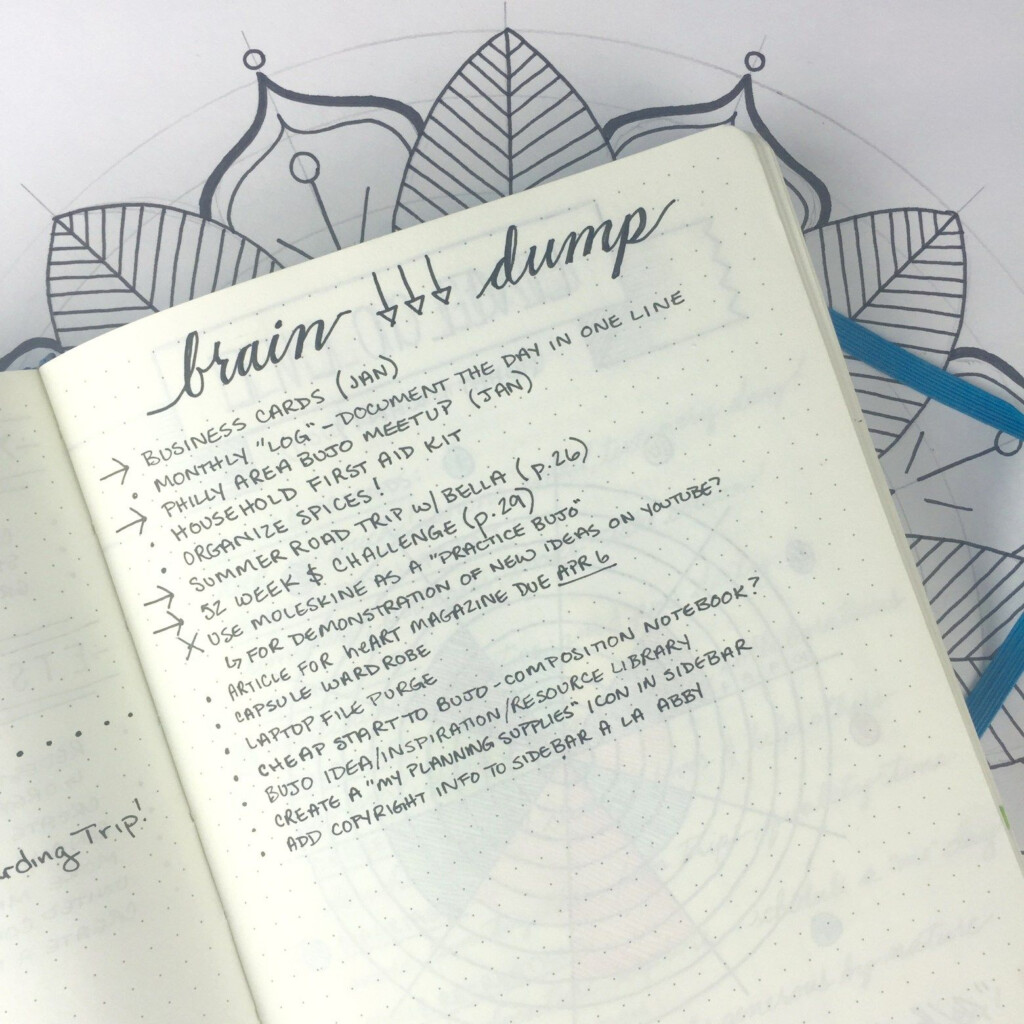 brain dump
→ BUSINESS CARDS (JAN)
• MONTHLY "LOG" - DOCUMENT THE DAY IN ONE LINE
→ PHILLY AREA BUJO MEETUP (JAN)
• HOUSEHOLD FIRST AID KIT
• ORGANIZE SPICES!
→ SUMMER ROAD TRIP W/ BELLA (p.26)
→ 52 WEEK $ CHALLENGE (p.29)
X USE MOLESKINE AS A "PRACTICE BUJO"
↳ FOR DEMONSTRATION OF NEW IDEAS ON YOUTUBE?
• ARTICLE FOR hEART MAGAZINE DUE APR 6
• CAPSULE WARDROBE
• LAPTOP FILE PURGE
• CHEAP START TO BUJO - COMPOSITION NOTEBOOK?
• BUJO IDEA/INSPIRATION/RESOURCE LIBRARY
• CREATE A "MY PLANNING SUPPLIES" ICON IN SIDEBAR
• ADD COPYRIGHT INFO TO SIDEBAR A LA ABBY
Trip!